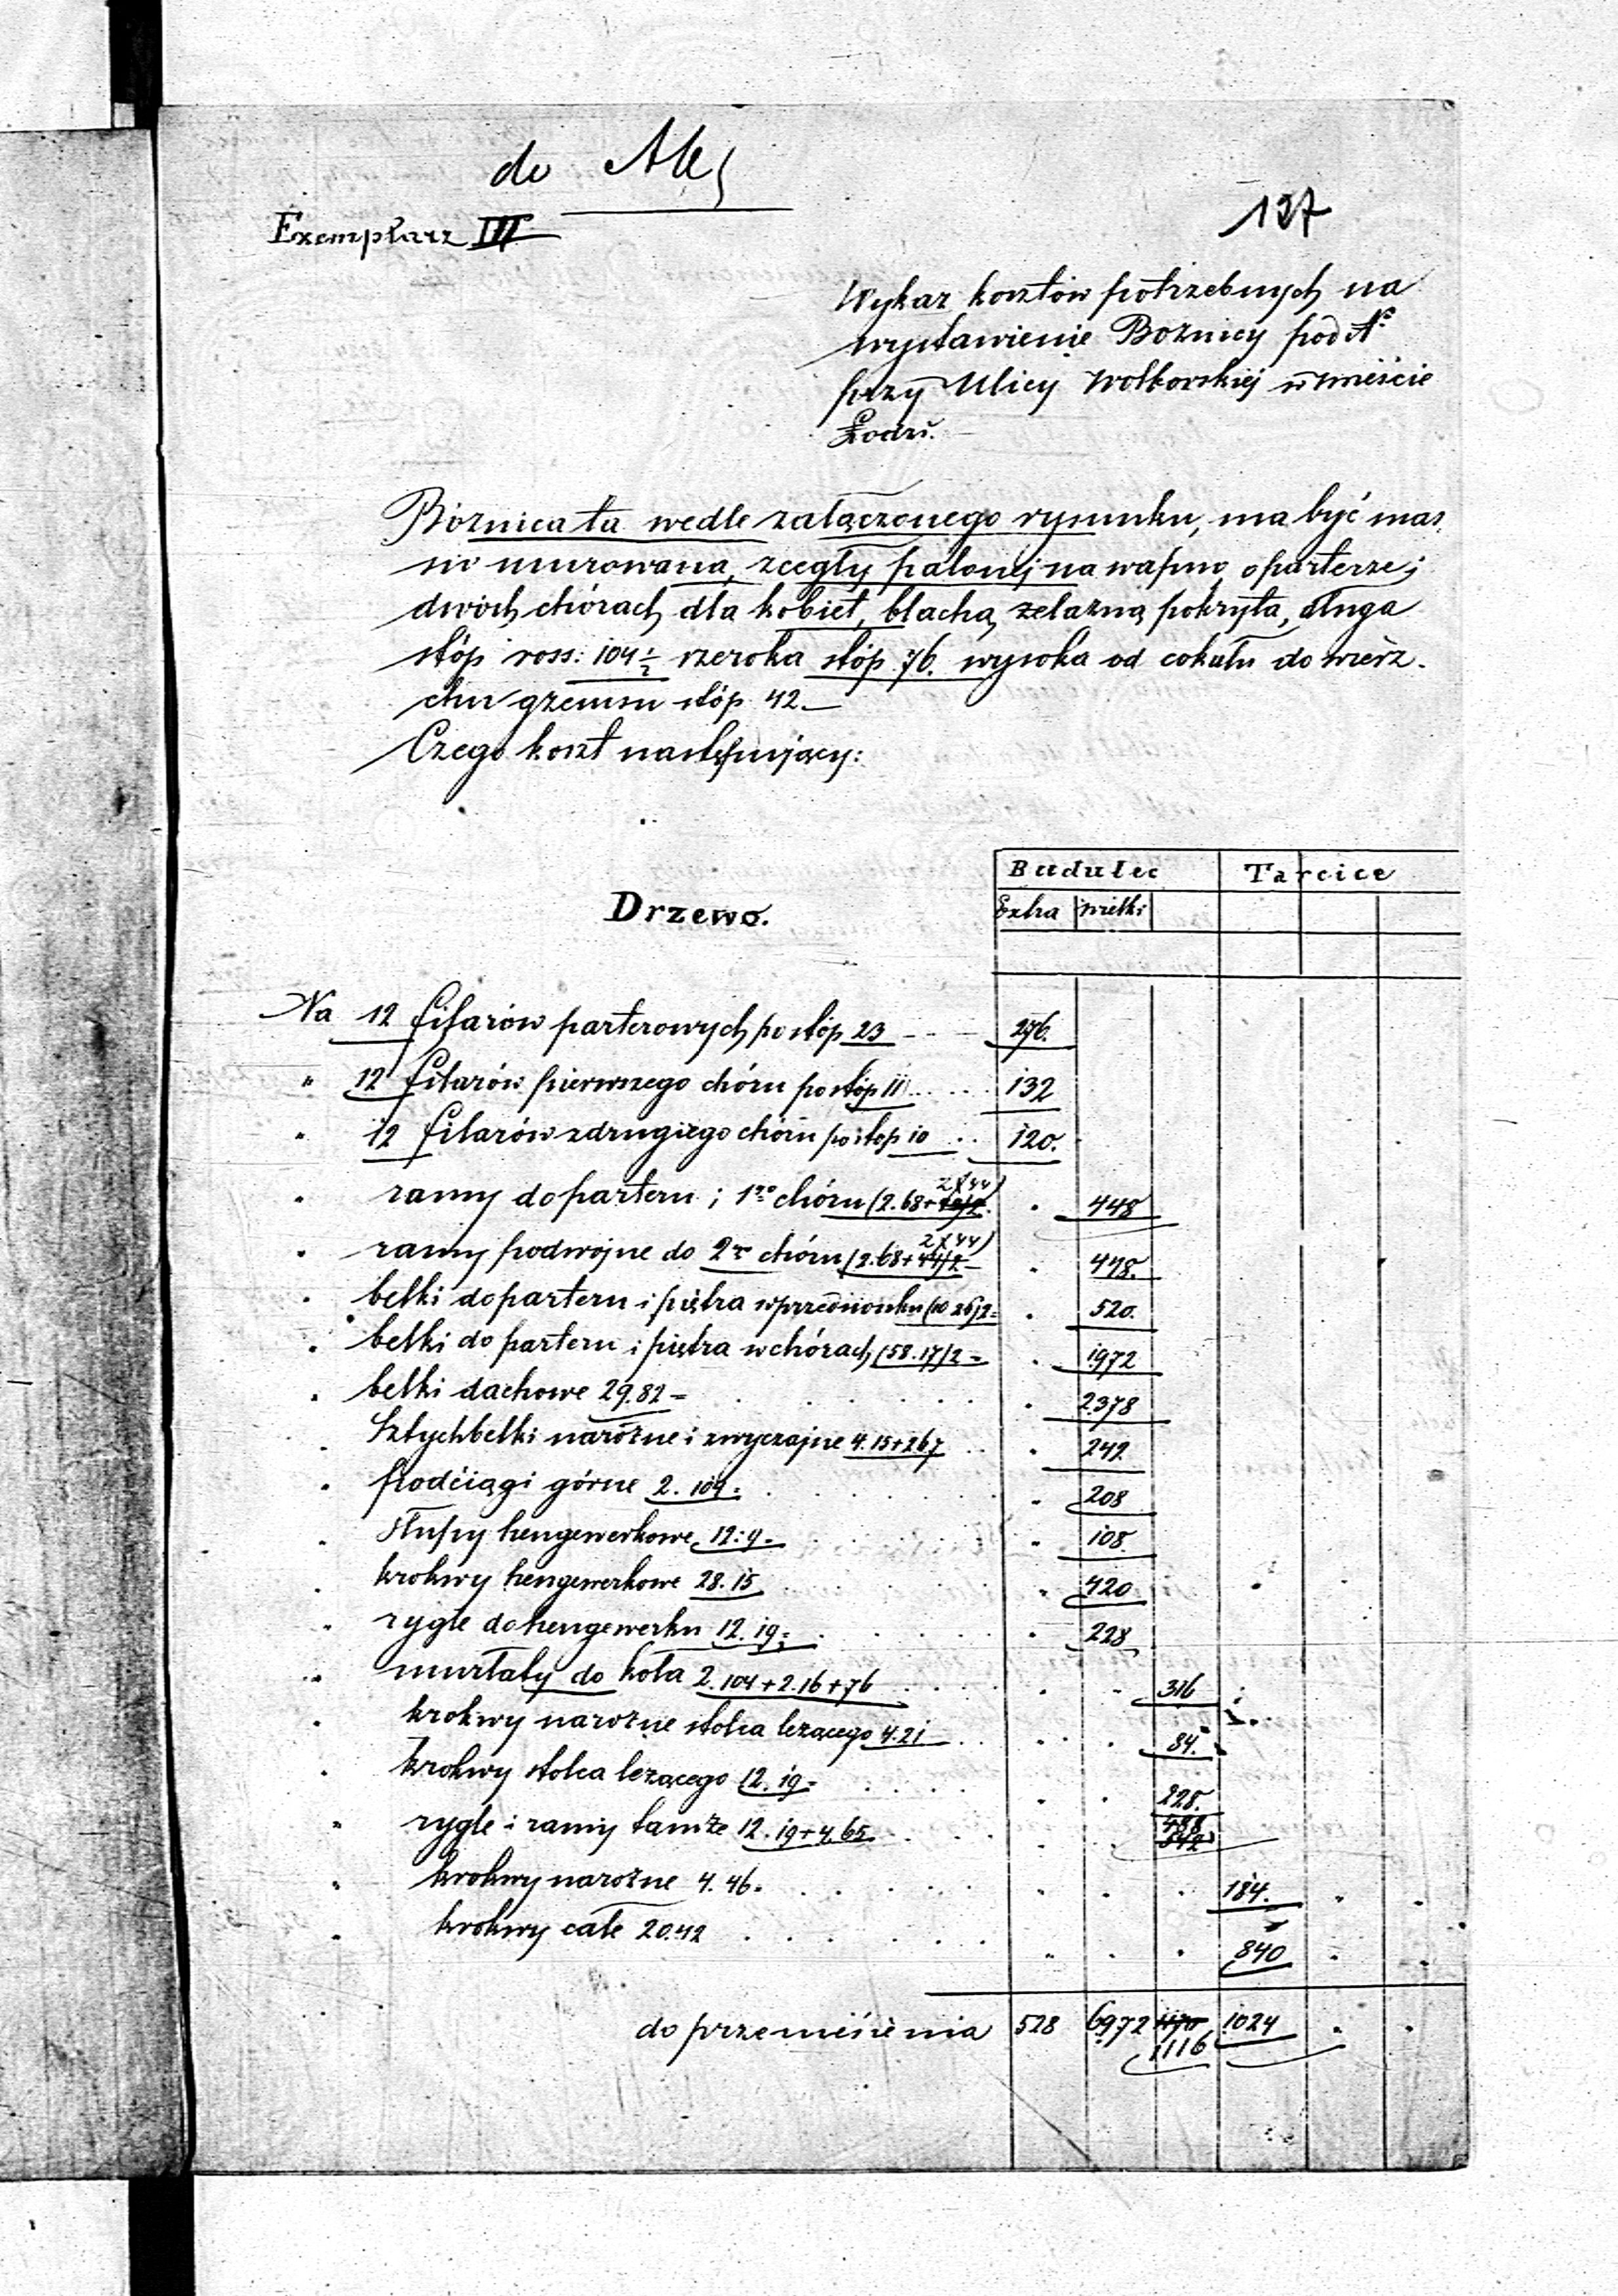 do
Exemplarz III
127
Wykaz kosztów potrzebnych na
wystawienie Bożnicy pod №
przy Ulicy Wolborskiéj w mieście
Łodzi.
Bóżnica ta wedle załączonego rysunku, ma być mas-
siv murowana, z cegły palonéj na wapno, o parterze i
dwóch chórach dla kobiet, blachą żelazną pokryta, długa
stóp ross: 104½ szeroka stóp 76. wysoka od cokułu do wierz-
chu gzemsu stóp 42.
Czego koszt następujący:
Budulec Tarcice
Drzewo. Extra wielki
Na 12 filarów parterowych po stóp 23 276.
" 12 filarów pierwszego chóru po stóp 11 132
" 12 filarów z drugiego chóru po stóp 10 120.
" ramy do parteru i 1go chóru (2.68+ 2(44) 448
" ramy podwójne do 2go chóru (2.68+ 2(44) 448.
" belki do parteru i piętra w przedsionku (10 26)2= 520.
" belki do parteru i piętra w chórach (58.17)2= 1972
" belki dachowe 29.82= 2378
" Sztychbelki narożne i zwyczajne 4.15+26 7 242
" podciągi górne 2. 104= 208
" słupy hengewerkowe 12.9= 108
" krokwy hengewerkowe 28.15 420
" rygle do hengewerku 12.19= 228
" murłaty do koła 2.104+2.16+76 316
" krokwy narożne stolca leżącego 4.21 84.
" krokwy stolca leżącego 12.19= 228.
" rygle i ramy tamże 12.19+4.65 488
" krokwy narożne 4.46= 184.
" krokwy całe 20.42 840
do przeniesienia 528 6972 1116 1024